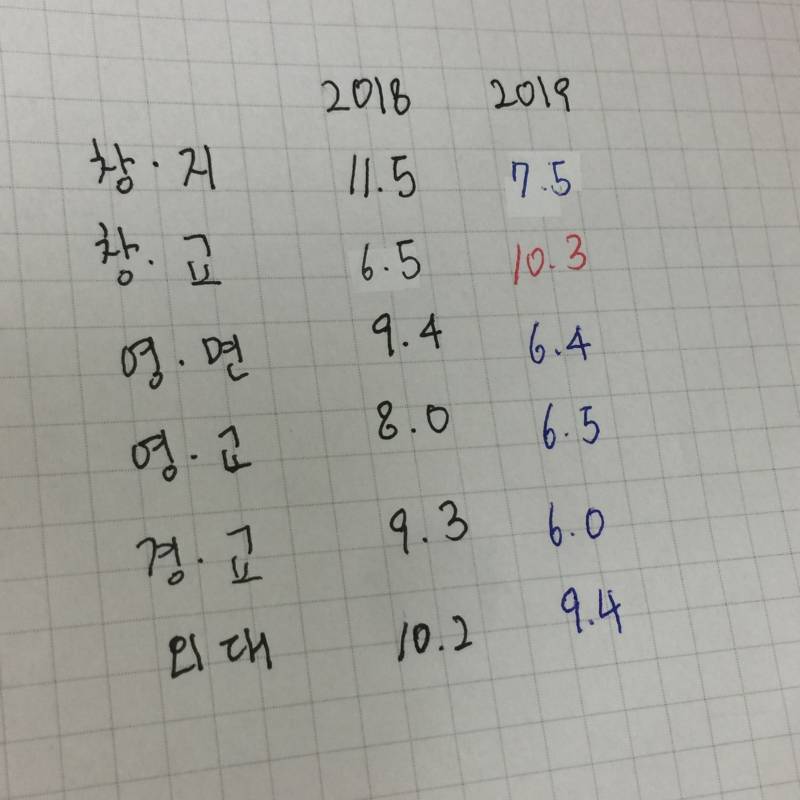 2018 2019
창·지 11.5 7.5
창·교 6.5 10.3
영·면 9.4 6.4
영·교 8.0 6.5
경·교 9.3 6.0
의대 10.2 9.4